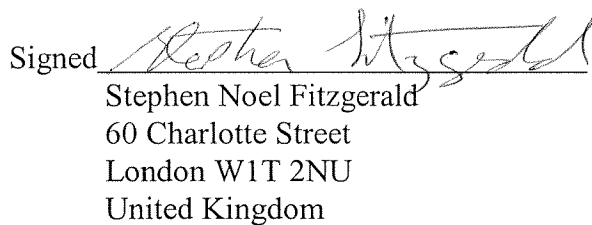 Signed Stephen Fitzgerald
Stephen Noel Fitzgerald
60 Charlotte Street
London W1T 2NU
United Kingdom